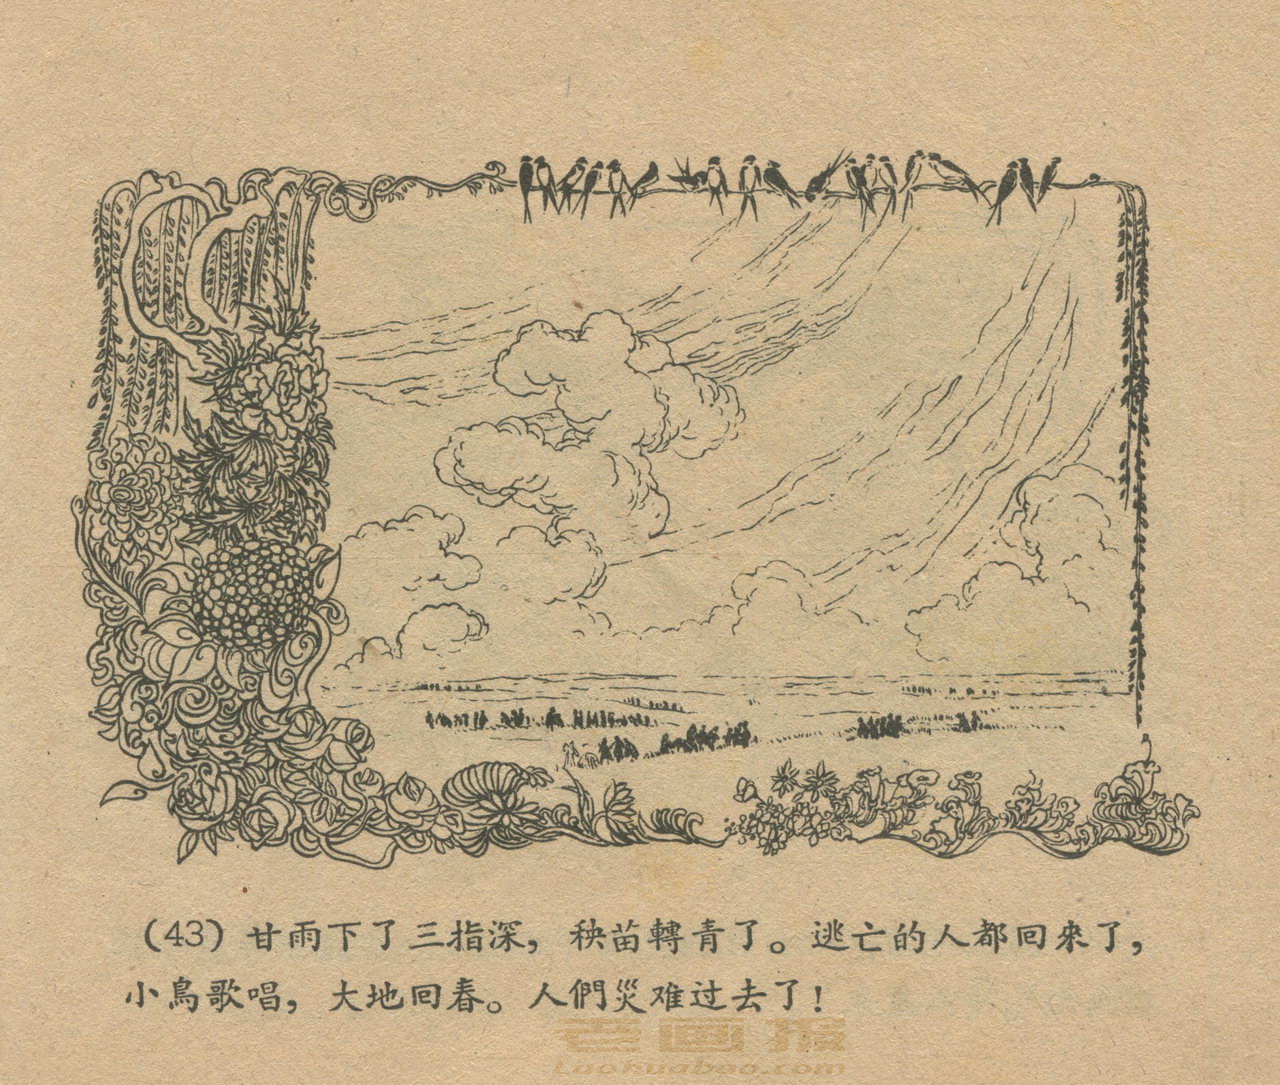 (43) 甘雨下了三指深，秧苗轉青了。逃亡的人都回來了，
小鳥歌唱，大地回春。人們災难过去了！
老画报
Laohuabao.com